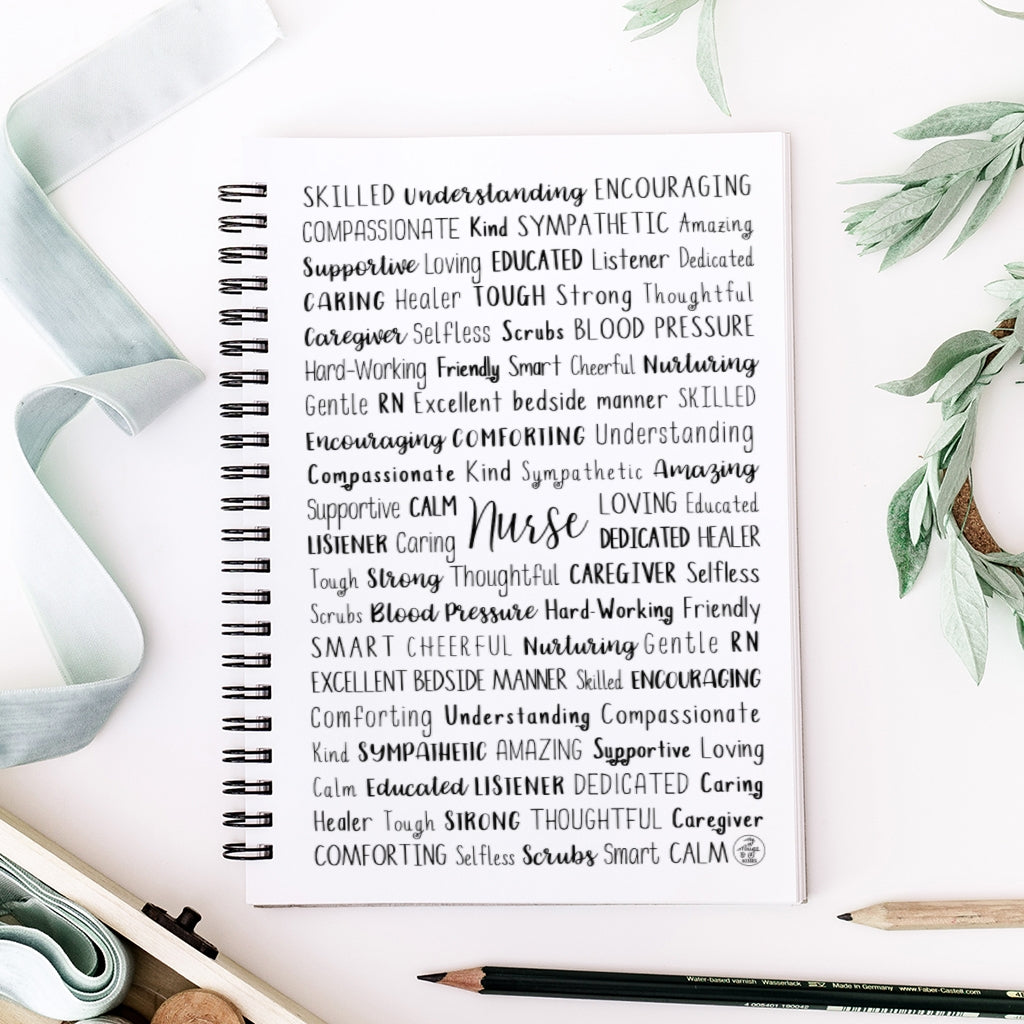 SKILLED Understanding ENCOURAGING
COMPASSIONATE Kind SYMPATHETIC Amazing
Supportive Loving EDUCATED Listener Dedicated
CARING Healer TOUGH Strong Thoughtful
Caregiver Selfless Scrubs BLOOD PRESSURE
Hard-Working Friendly Smart Cheerful Nurturing
Gentle RN Excellent bedside manner SKILLED
Encouraging COMFORTING Understanding
Compassionate Kind Sympathetic Amazing
Supportive CALM LOVING Educated
Nurse
LISTENER Caring DEDICATED HEALER
Tough Strong Thoughtful CAREGIVER Selfless
Scrubs Blood Pressure Hard-Working Friendly
SMART CHEERFUL Nurturing Gentle RN
EXCELLENT BEDSIDE MANNER Skilled ENCOURAGING
Comforting Understanding Compassionate
Kind SYMPATHETIC AMAZING Supportive Loving
Calm Educated LISTENER DEDICATED Caring
Healer Tough STRONG THOUGHTFUL Caregiver
COMFORTING Selfless Scrubs Smart CALM
Water-based varnish Wasserlack Made in Germany www.Faber-Castell.com
4 005401 190042